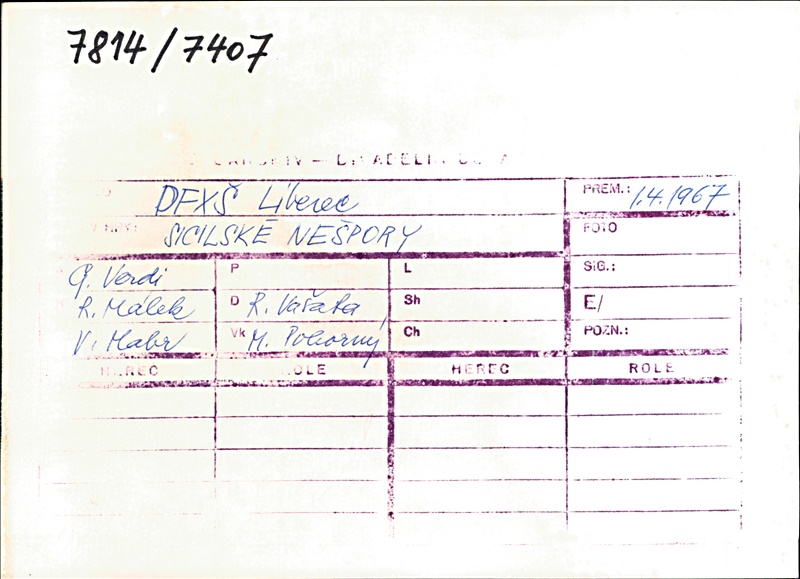 7814/7407
DFXŠ Liberec PREM.: 1.4.1967
SICILSKÉ NEŠPORY FOTO
G. Verdi P L SIG.:
R. Málek D R. Vašata Sh E/
V. Habr Vk M. Pokorný Ch POZN.:
HEREC ROLE HEREC ROLE